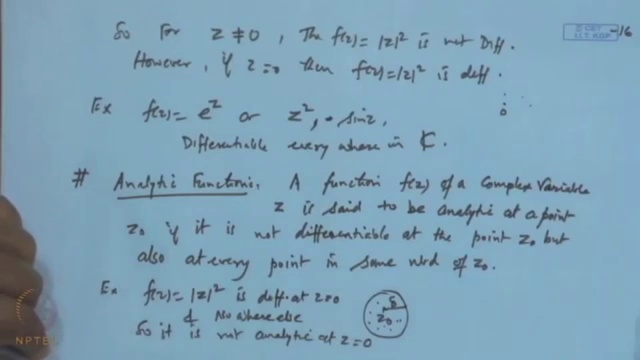 So For z ≠ 0, The f(z) = |z|² is not Diff.
However, if z = 0 then f(z) = |z|² is diff.
Ex f(z) = e^z or z², sin z,
Differentiable every where in ₵.
# Analytic Functions. A function f(z) of a Complex Variable
z is said to be analytic at a point
z₀ if it is not differentiable at the point z₀ but
also at every point in some nbd of z₀.
Ex f(z) = |z|² is diff. at z=0
& No where else
So it is not analytic at z=0
δ
z₀
0
I.I.T. KGP
-16
NPTEL